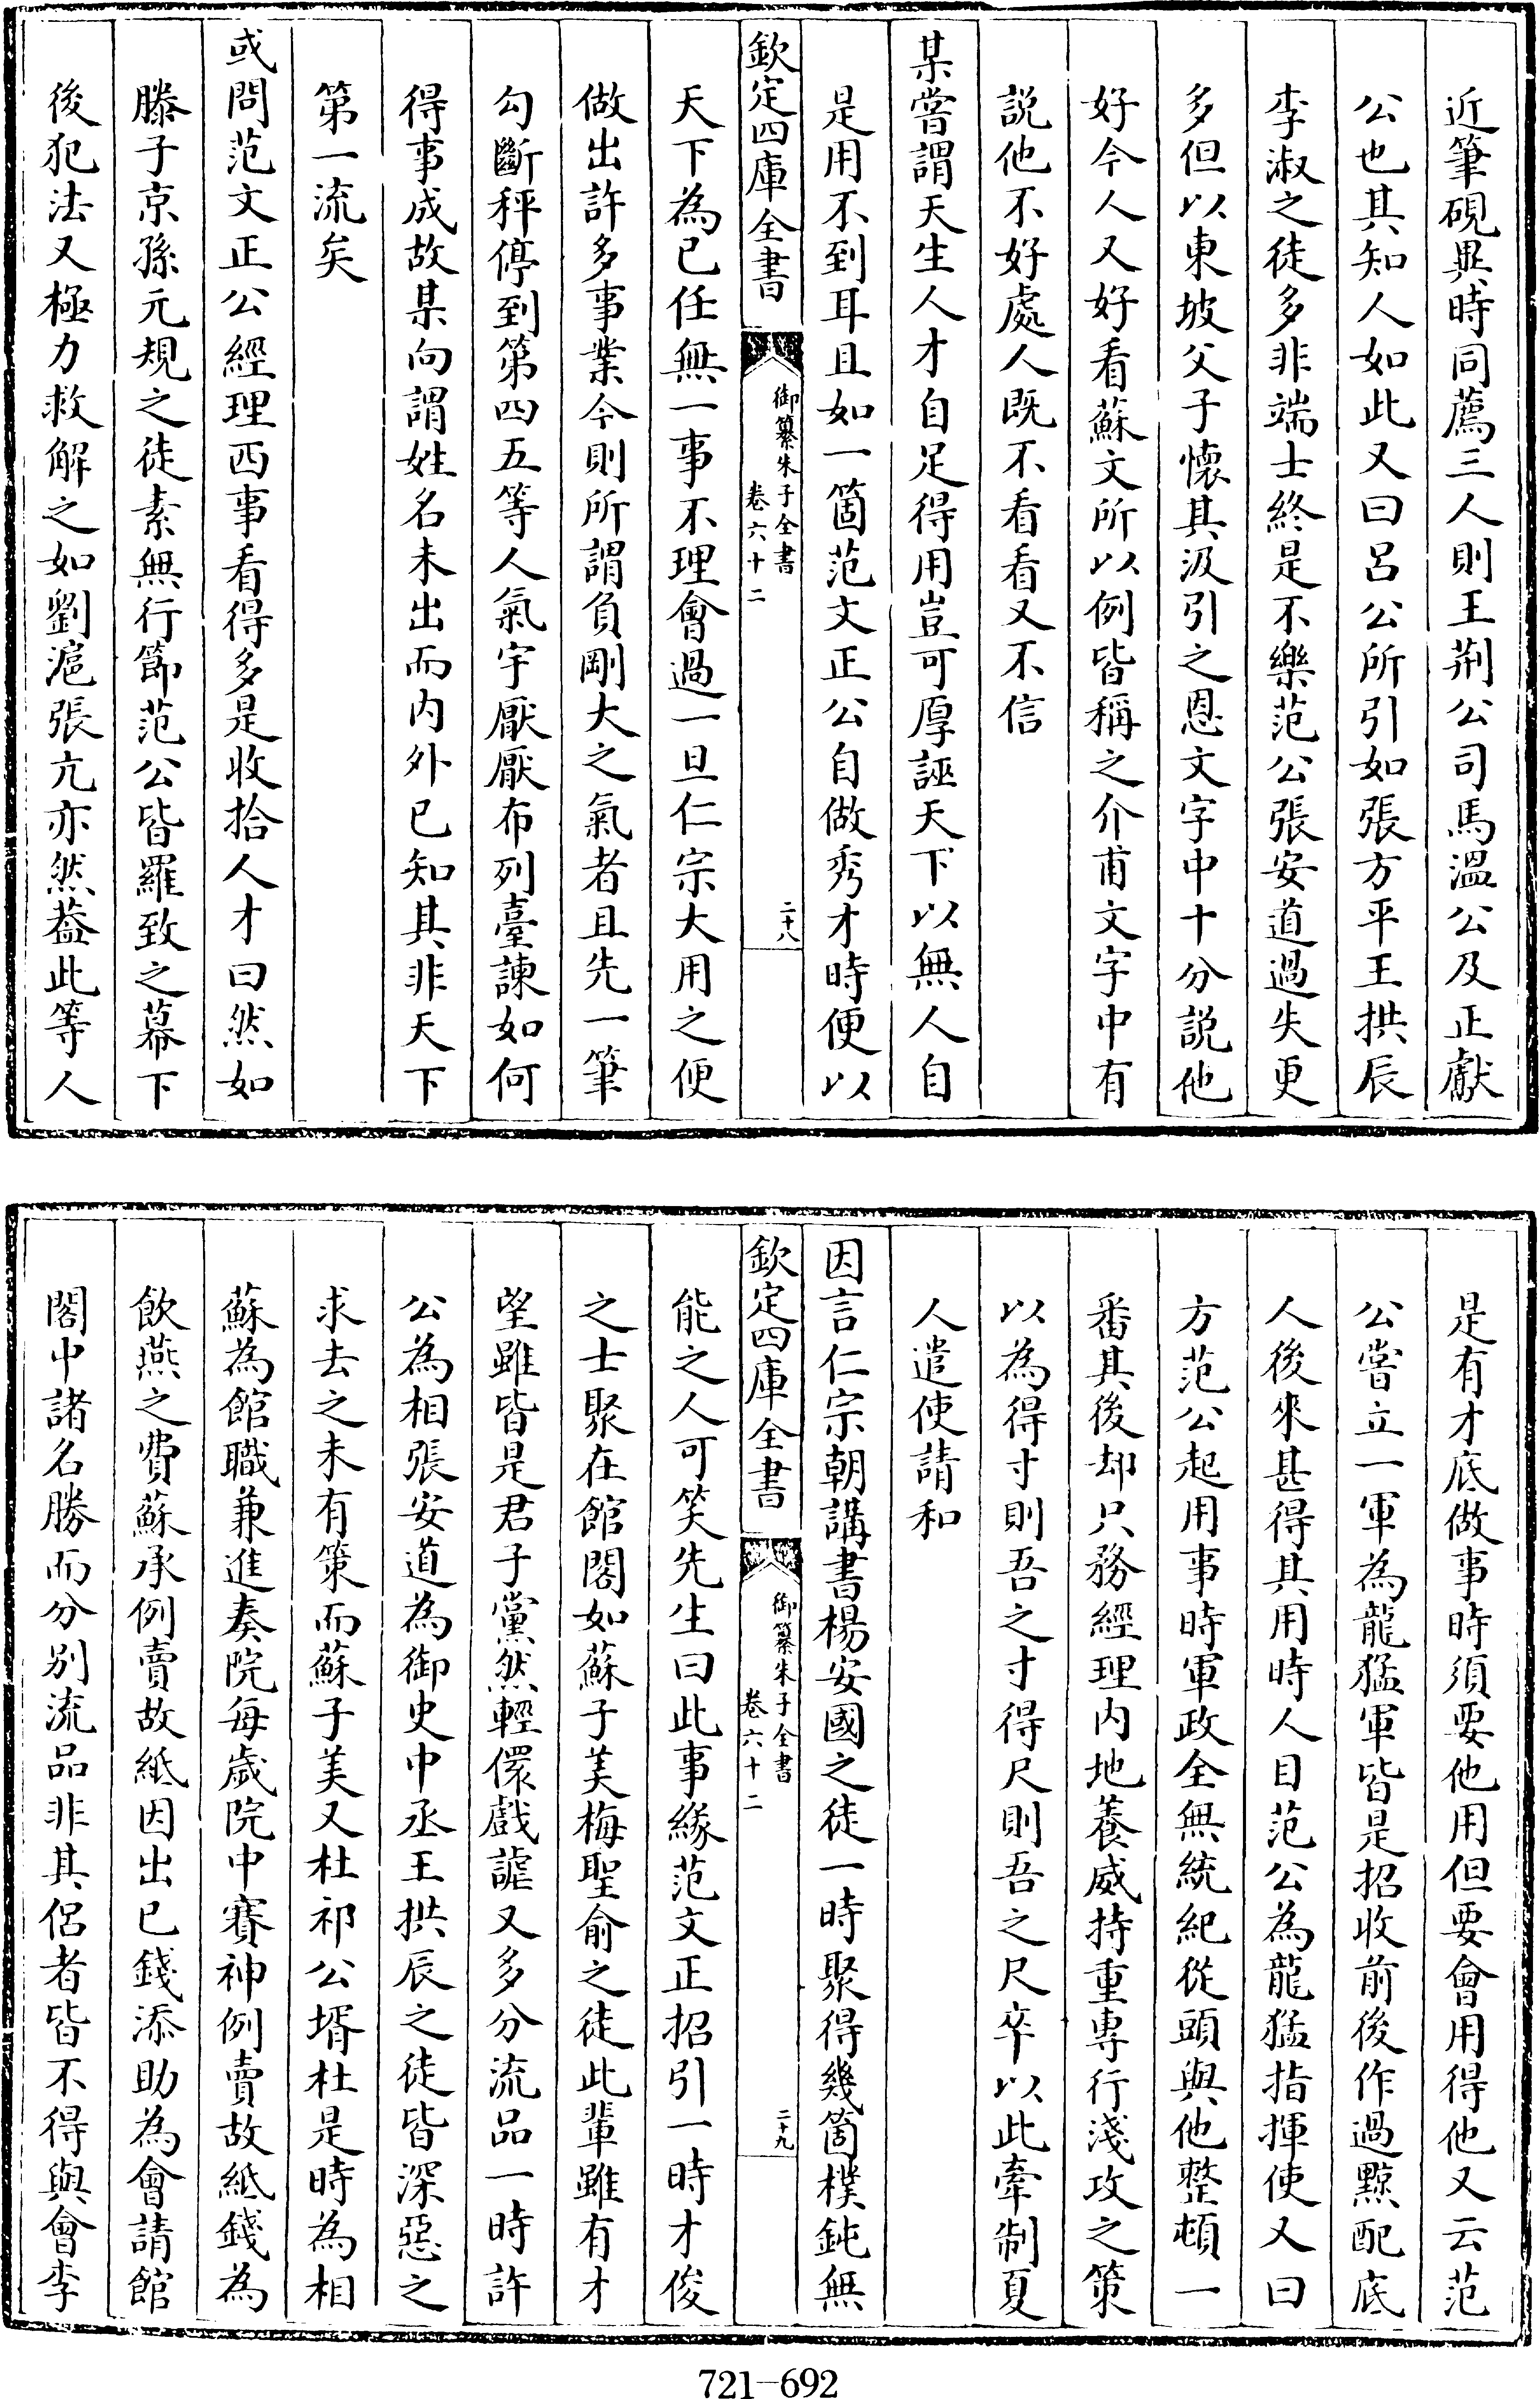 近筆硯異時同薦三人則王荆公司馬溫公及正獻
公也其知人如此又曰呂公所引如張方平王拱辰
李淑之徒多非端士終是不樂范公張安道過失更
多但以東坡父子懷其汲引之恩文字中十分説他
好今人又好看蘇文所以例皆稱之介甫文字中有
説他不好處人既不看看又不信
某嘗謂天生人才自足得用豈可厚誣天下以無人自
是用不到耳且如一箇范文正公自做秀才時便以
欽定四庫全書
御纂朱子全書
卷六十二
二十八
天下為已任無一事不理會過一旦仁宗大用之便
做出許多事業今則所謂負剛大之氣者且先一筆
勾斷秤停到第四五等人氣宇厭厭布列臺諫如何
得事成故某向謂姓名未出而内外已知其非天下
第一流矣
或問范文正公經理西事看得多是收拾人才曰然如
滕子京孫元規之徒素無行節范公皆羅致之幕下
後犯法又極力救解之如劉滬張亢亦然葢此等人
是有才底做事時須要他用但要會用得他又云范
公嘗立一軍為龍猛軍皆是招收前後作過黥配底
人後來甚得其用時人目范公為龍猛指揮使又曰
方范公起用事時軍政全無統紀從頭與他整頓一
番其後却只務經理内地養威持重專行淺攻之策
以為得寸則吾之寸得尺則吾之尺卒以此牽制夏
人遣使請和
因言仁宗朝講書楊安國之徒一時聚得幾箇樸鈍無
欽定四庫全書
御纂朱子全書
卷六十二
二十九
能之人可笑先生曰此事緣范文正招引一時才俊
之士聚在館閣如蘇子美梅聖俞之徒此輩雖有才
望雖皆是君子黨然輕儇戲謔又多分流品一時許
公為相張安道為御史中丞王拱辰之徒皆深惡之
求去之未有策而蘇子美又杜祁公壻杜是時為相
蘇為館職兼進奏院每歲院中賽神例賣故紙錢為
飲燕之費蘇承例賣故紙因出已錢添助為會請館
閣中諸名勝而分别流品非其侣者皆不得與會李
721-692